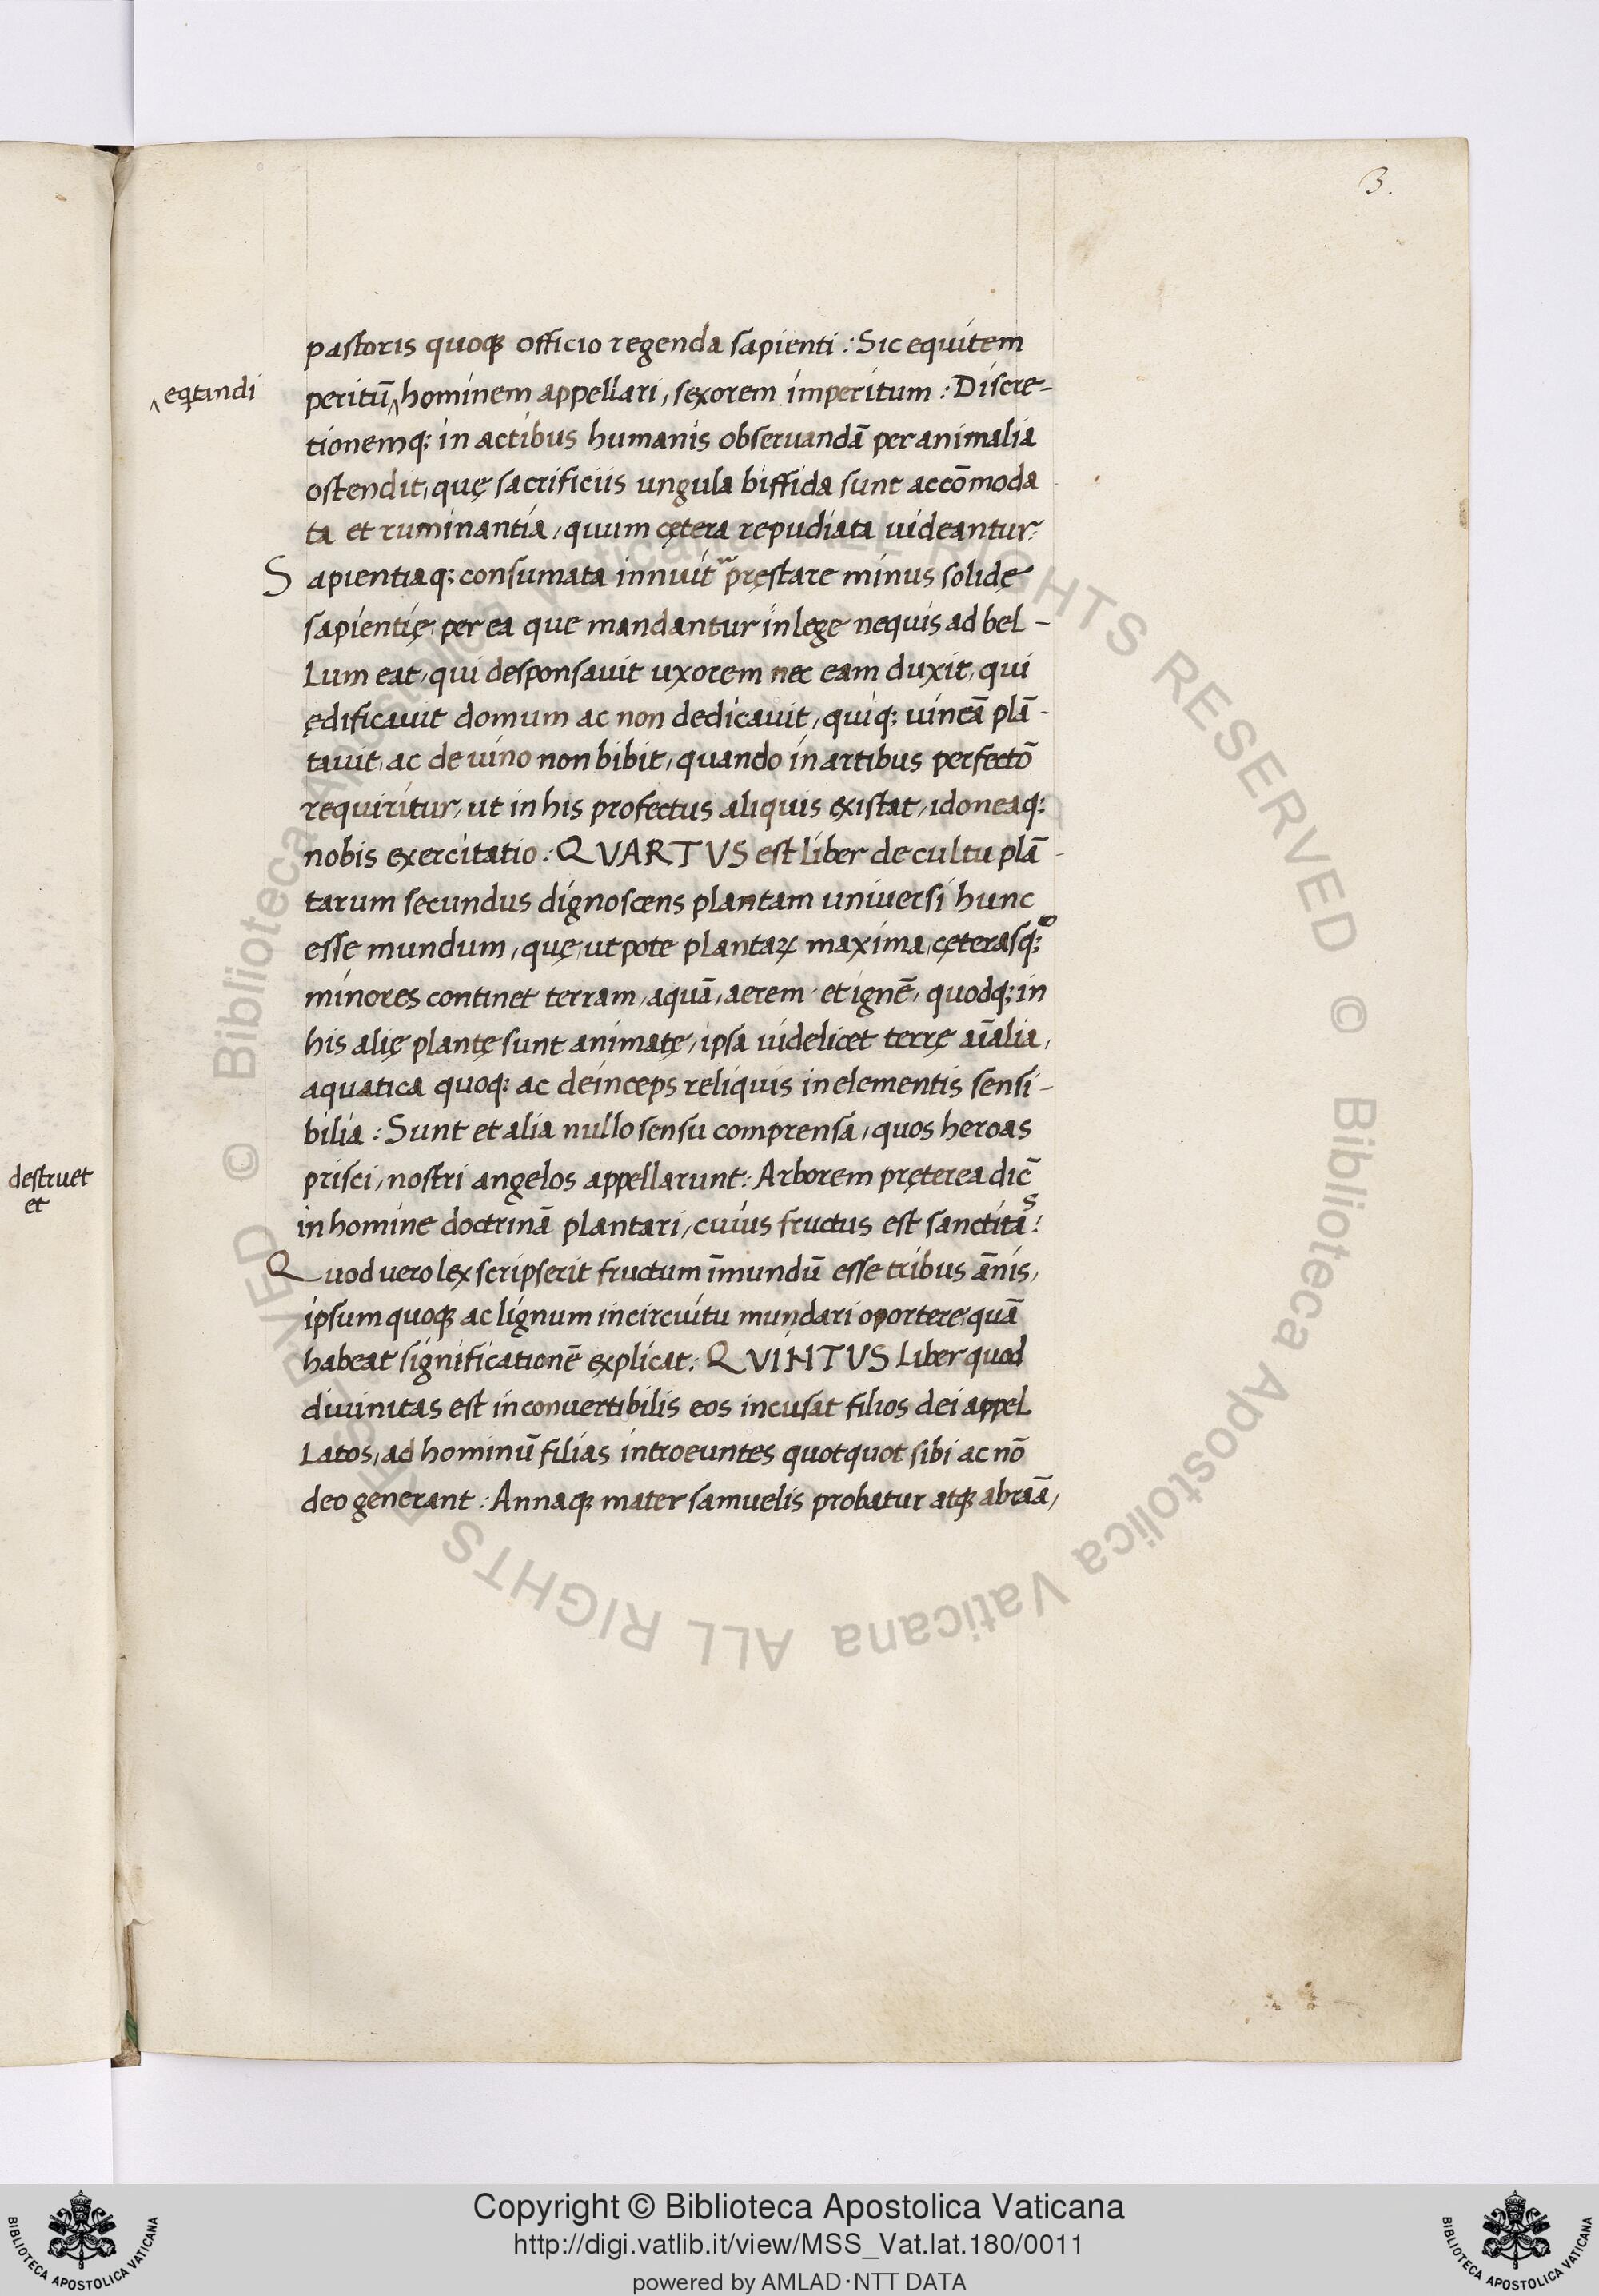 3.
pastoris quoqꝫ officio regenda sapienti : Sic equitem
^ eqtandi
peritū ^ hominem appellari, sexorem imperitum : Discre-
tionemq; in actibus humanis obseruandā per animalia
ostendit, quę sacrificiis ungula biffida sunt accōmoda
ta et ruminantia, quum cętera repudiata uideantur:
Sapientiaq; consumata innuit pręstare minus solidę
sapientię, per ea que mandantur in lege nequis ad bel-
Lum eat, qui desponsauit uxorem nec eam duxit, qui
ędificauit domum ac non dedicauit, quiq; uineā plā-
tauit, ac de uino non bibit, quando in artibus perfectō
requiritur, ut in his profectus aliquis existat, idoneaq;
nobis exercitatio : QVARTVS est liber de cultu plā-
tarum secundus dignoscens plantam uniuersi hunc
esse mundum, quę, utpote plantaꝝ maxima, cęterasq;
minores continet terram, aquā, aerem et ignē, quodq; in
his alię plantę sunt animatę, ipsa uidelicet terrę aīalia,
aquatica quoq; ac deinceps reliquis in elementis sensi-
bilia : Sunt et alia nullo sensu comprensa, quos heroas
prisci, nostri angelos appellarunt : Arborem pręterea dic̄
in homine doctrinā plantari, cuius fructus est sanctitas:
Quod uero lex scripserit fructum īmundū esse tribus ānis,
ipsum quoqꝫ ac lignum incircuitu mundari oportere, quā
habeat significationē explicat : QVINTVS Liber quod
diuinitas est inconuertibilis eos incusat filios dei appel
Latos, ad hominū filias introeuntes quotquot sibi ac nō
deo generant : Annaqꝫ mater samuelis probatur atqꝫ abraā,
destruet
et
© Biblioteca Apostolica Vaticana ALL RIGHTS RESERVED © Biblioteca Apostolica Vaticana ALL RIGHTS RESERVED
Copyright © Biblioteca Apostolica Vaticana
http://digi.vatlib.it/view/MSS_Vat.lat.180/0011
powered by AMLAD·NTT DATA
BIBLIOTECA APOSTOLICA VATICANA
BIBLIOTECA APOSTOLICA VATICANA